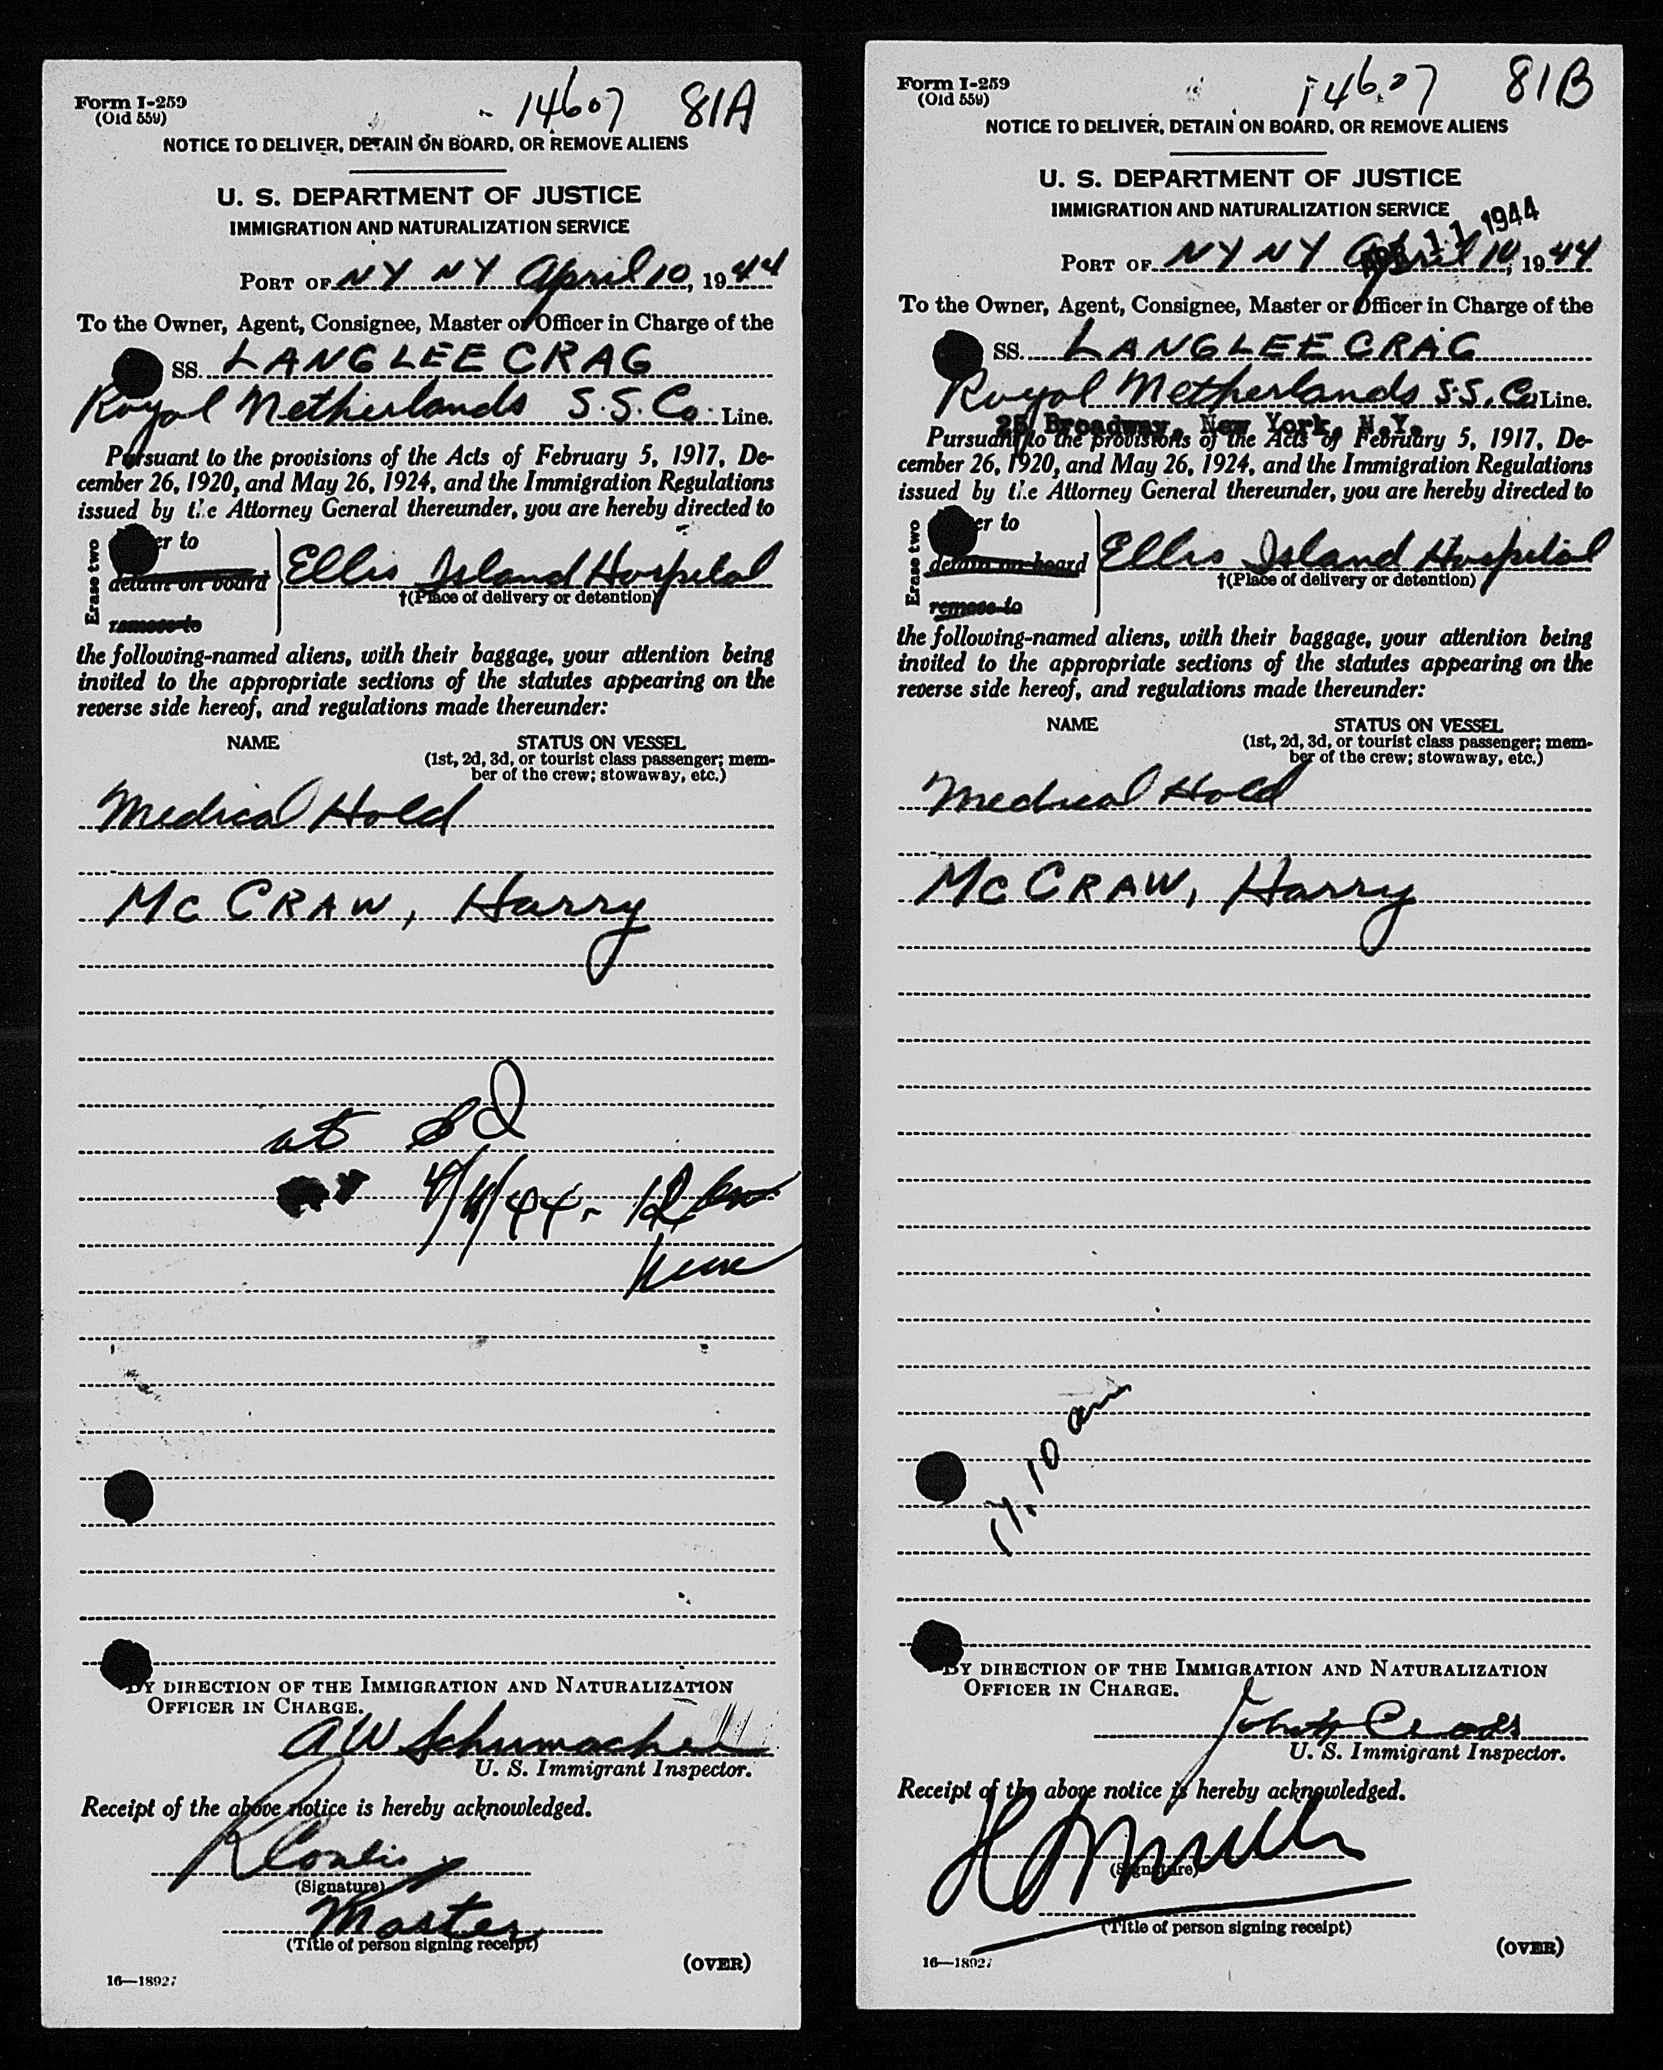 Form I-259
(Old 559)
14607 81A
NOTICE TO DELIVER, DETAIN ON BOARD, OR REMOVE ALIENS
U. S. DEPARTMENT OF JUSTICE
IMMIGRATION AND NATURALIZATION SERVICE
PORT OF NY NY April 10, 1944
To the Owner, Agent, Consignee, Master or Officer in Charge of the
SS. LANGLEE CRAG
Royal Netherlands S.S. Co. Line.
Pursuant to the provisions of the Acts of February 5, 1917, De-
cember 26, 1920, and May 26, 1924, and the Immigration Regulations
issued by the Attorney General thereunder, you are hereby directed to
Erase two
er to
detain on board
remove to
Ellis Island Hospital
†(Place of delivery or detention)
the following-named aliens, with their baggage, your attention being
invited to the appropriate sections of the statutes appearing on the
reverse side hereof, and regulations made thereunder:
NAME STATUS ON VESSEL
(1st, 2d, 3d, or tourist class passenger; mem-
ber of the crew; stowaway, etc.)
Medical Hold
McCRAW, Harry
at
4/11/44 - 12
BY DIRECTION OF THE IMMIGRATION AND NATURALIZATION
OFFICER IN CHARGE.
A W Schumacher
U. S. Immigrant Inspector.
Receipt of the above notice is hereby acknowledged.
(Signature)
Master
(Title of person signing receipt)
(OVER)
16—18927
Form I-259
(Old 559)
14607 81B
NOTICE TO DELIVER, DETAIN ON BOARD, OR REMOVE ALIENS
U. S. DEPARTMENT OF JUSTICE
IMMIGRATION AND NATURALIZATION SERVICE
APR 11 1944
PORT OF NY NY April 10, 1944
To the Owner, Agent, Consignee, Master or Officer in Charge of the
SS. LANGLEE CRAG
Royal Netherlands S.S. Co. Line.
25 Broadway, New York, N.Y.
Pursuant to the provisions of the Acts of February 5, 1917, De-
cember 26, 1920, and May 26, 1924, and the Immigration Regulations
issued by the Attorney General thereunder, you are hereby directed to
Erase two
er to
detain on board
remove to
Ellis Island Hospital
†(Place of delivery or detention)
the following-named aliens, with their baggage, your attention being
invited to the appropriate sections of the statutes appearing on the
reverse side hereof, and regulations made thereunder:
NAME STATUS ON VESSEL
(1st, 2d, 3d, or tourist class passenger; mem-
ber of the crew; stowaway, etc.)
Medical Hold
McCRAW, Harry
10 am
BY DIRECTION OF THE IMMIGRATION AND NATURALIZATION
OFFICER IN CHARGE.
U. S. Immigrant Inspector.
Receipt of the above notice is hereby acknowledged.
(Signature)
(Title of person signing receipt)
(OVER)
16—18927